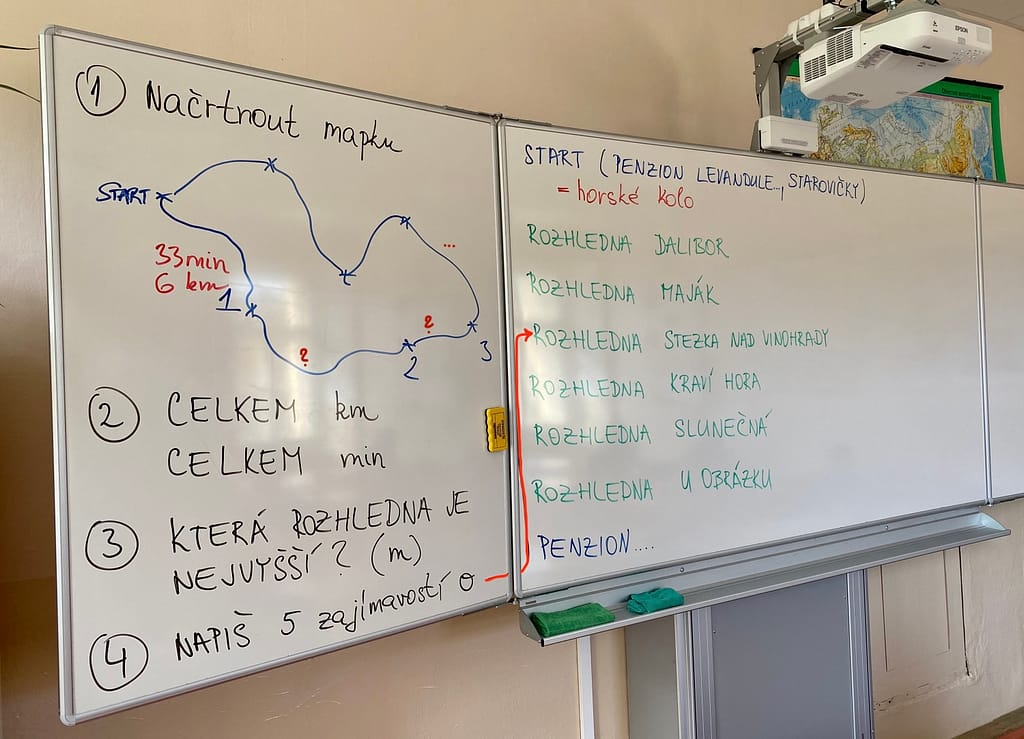 ① Načrtnout mapku
START
33min
6 km
1
?
?
2
3
...
② CELKEM km
CELKEM min
③ KTERÁ ROZHLEDNA JE
NEJVYŠŠÍ? (m)
④ NAPIŠ 5 zajímavostí o
START (PENZION LEVANDULE..., STAROVIČKY)
= horské kolo
ROZHLEDNA DALIBOR
ROZHLEDNA MAJÁK
ROZHLEDNA STEZKA NAD VINOHRADY
ROZHLEDNA KRAVÍ HORA
ROZHLEDNA SLUNEČNÁ
ROZHLEDNA U OBRÁZKU
PENZION....
EPSON
EPSON